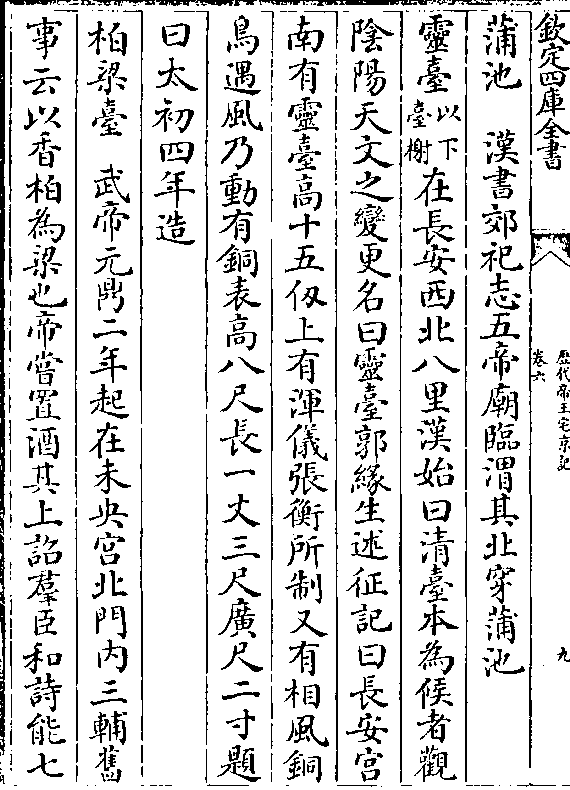 欽定四庫全書
歷代帝王宅京記
卷六
九
蒲池　漢書郊祀志五帝廟臨渭其北穿蒲池
靈臺以下臺榭在長安西北八里漢始曰清臺本為候者觀
陰陽天文之變更名曰靈臺郭緣生述征記曰長安宫
南有靈臺高十五仭上有渾儀張衡所制又有相風銅
鳥遇風乃動有銅表高八尺長一丈三尺廣尺二寸題
曰太初四年造
柏梁臺　武帝元鼎二年起在未央宫北門内三輔舊
事云以香柏為梁也帝嘗置酒其上詔羣臣和詩能七